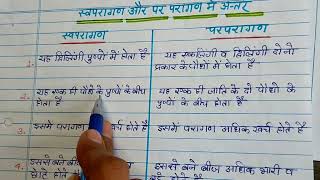 स्वपरागण और पर परागण में अन्तर
स्वपरागण
परपरागण
1. यह द्विलिंगी पुष्पों में होता है
यह एकलिंगी व द्विलिंगी दोनो
प्रकार के पौधों में होता है
2. यह एक ही पौधे के पुष्पों के बीच
होता है
यह एक ही जाति के दो पौधो के
पुष्पों के बीच होता है
3. इसमें परागण खर्च होते है
इसमें परागण अधिक खर्च होते है
4. इससे बने बीज
इससे बने बीज अधिक भारी व